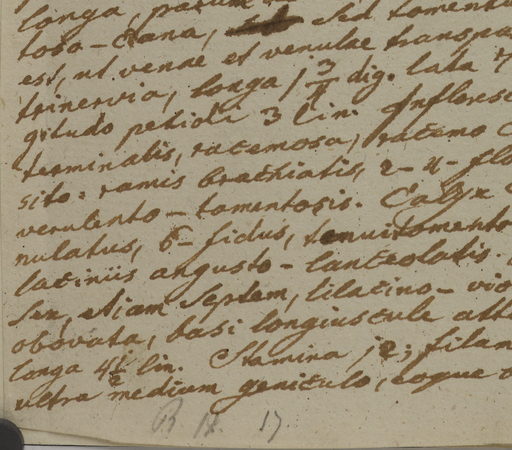 longa, parum
tosa-cana, sed toment
est, ut venae et venulae transpa
trinervia, longa 1 3/4 dig. lata 7
gitudo petioli 3 lin. Infloresc
terminalis, racemosa, racemo c
sito: ramis brachiatis, 2-4-flo
verulento-tomentosis. Calyx
nulatus, 6-fidus, tenuitomento
laciniis angusto-lanceolatis.
sex, etiam septem, lilacino-vio
obovata, basi longiuscule atte
longa 4 1/2 lin. Stamina 12; filam
ultra medium geniculo, eoque
17.